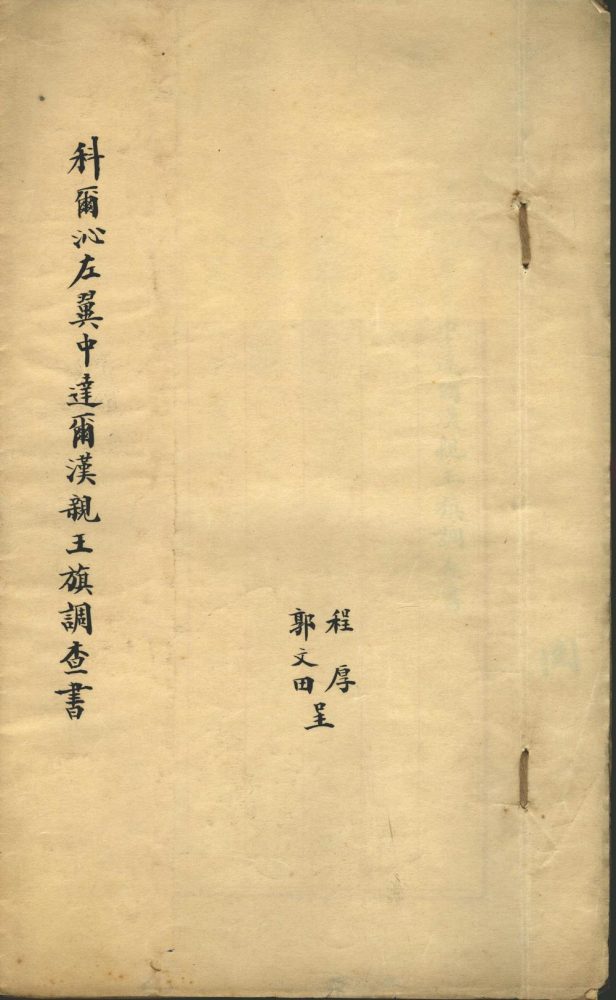 科爾沁左翼中達爾漢親王旗調查書
程厚
郭文田
呈